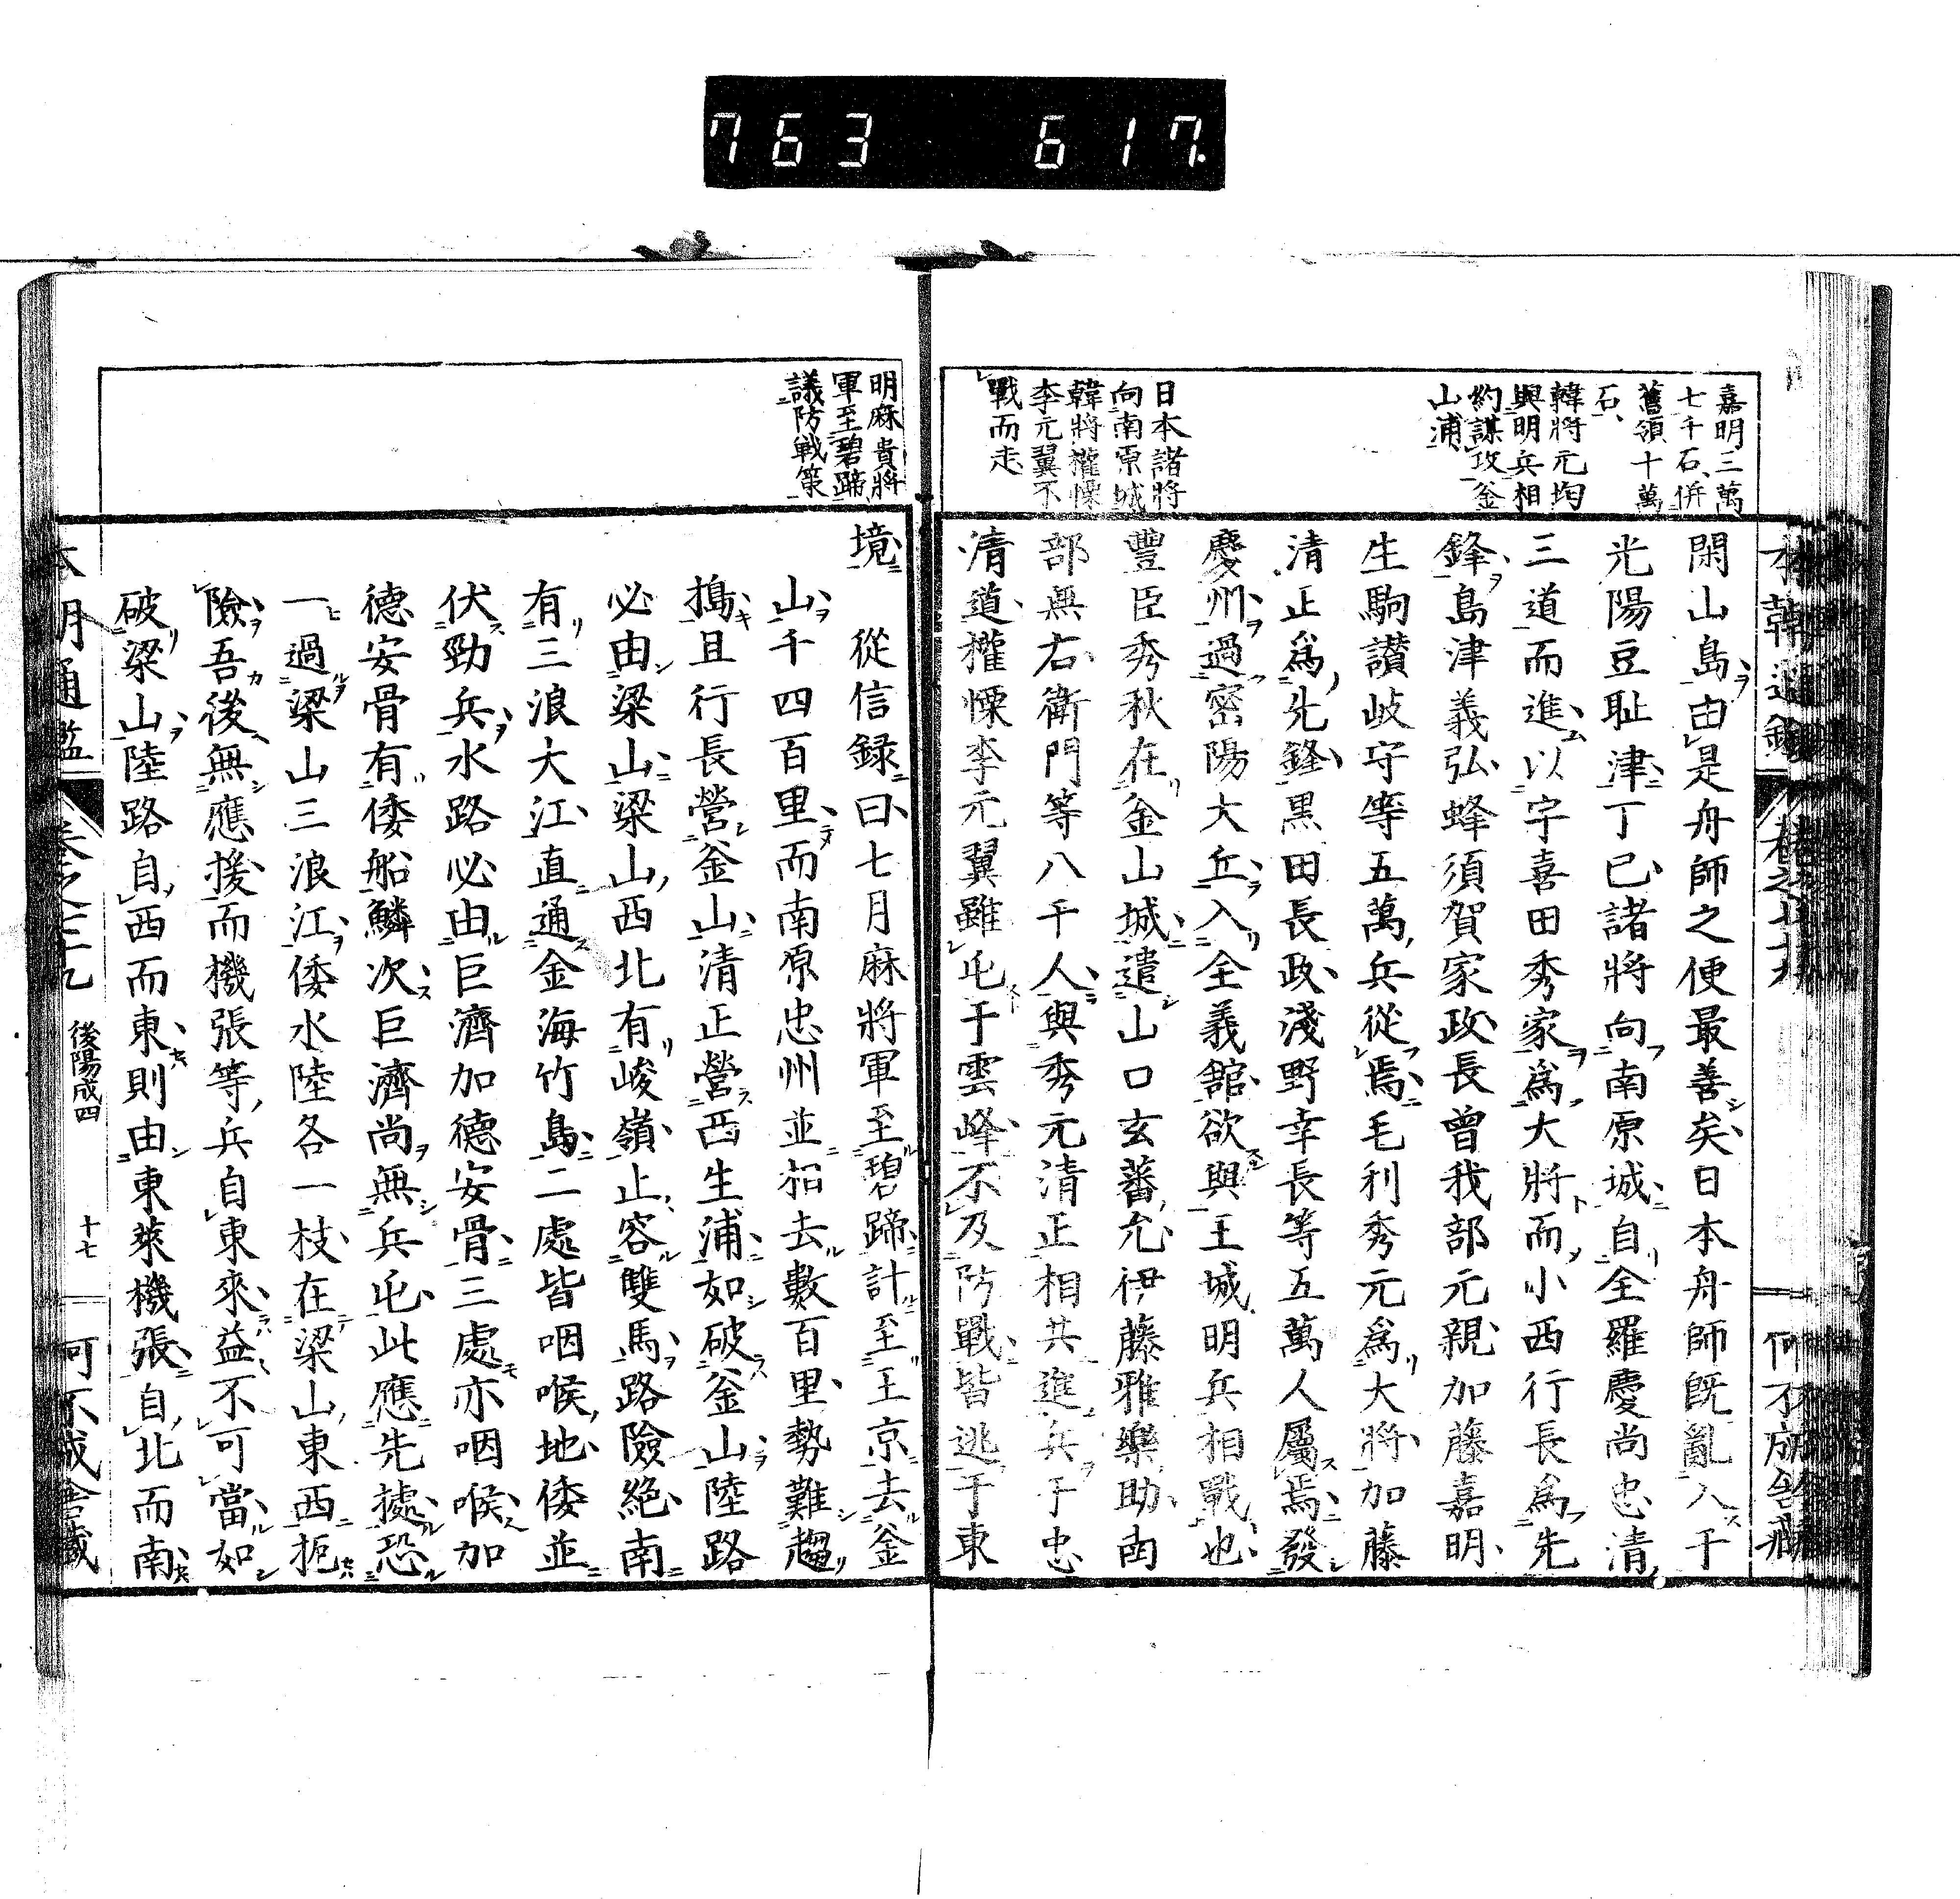 763 617
嘉明三萬
七千石併
舊領十萬
石
韓將元均
與明兵相
約謀攻釜
山浦
日本諸將
向南原城
韓將權慄
李元翼不
戰而走
閑山島由是舟師之便最善矣日本舟師旣亂入于
光陽豆耻津丁巳諸將向南原城自全羅慶尚忠清
三道而進以宇喜田秀家爲大將而小西行長爲先
鋒島津義弘蜂須賀家政長曾我部元親加藤嘉明
生駒讃岐守等五萬兵從焉毛利秀元爲大將加藤
清正爲先鋒黒田長政淺野幸長等五萬人屬焉發
慶州過密陽大丘入全義舘欲與王城明兵相戰也
豐臣秀秋在金山城遣山口玄蕃允伊藤雅樂助南
部無右衛門等八千人與秀元清正相共進兵于忠
清道權慄李元翼雖屯于雲峰不及防戰皆逃于東
明麻貴將
軍至碧蹄
議防戰策
境
從信録曰七月麻將軍至碧蹄計至王京去釜
山千四百里而南原忠州並相去數百里勢難趨
搗且行長營釜山清正營西生浦如破釜山陸路
必由梁山梁山西北有峻嶺止容雙馬路險絕南
有三浪大江直通金海竹島二處皆咽喉地倭並
伏勁兵水路必由巨濟加德安骨三處亦咽喉加
德安骨有倭船鱗次巨濟尚無兵屯此應先據恐
一過梁山三浪江倭水陸各一枝在梁山東西扼
險吾後無應援而機張等兵自東來益不可當如
破梁山陸路自西而東則由東萊機張自北而南
本朝通鑑 卷之三十九 後陽成四 十七